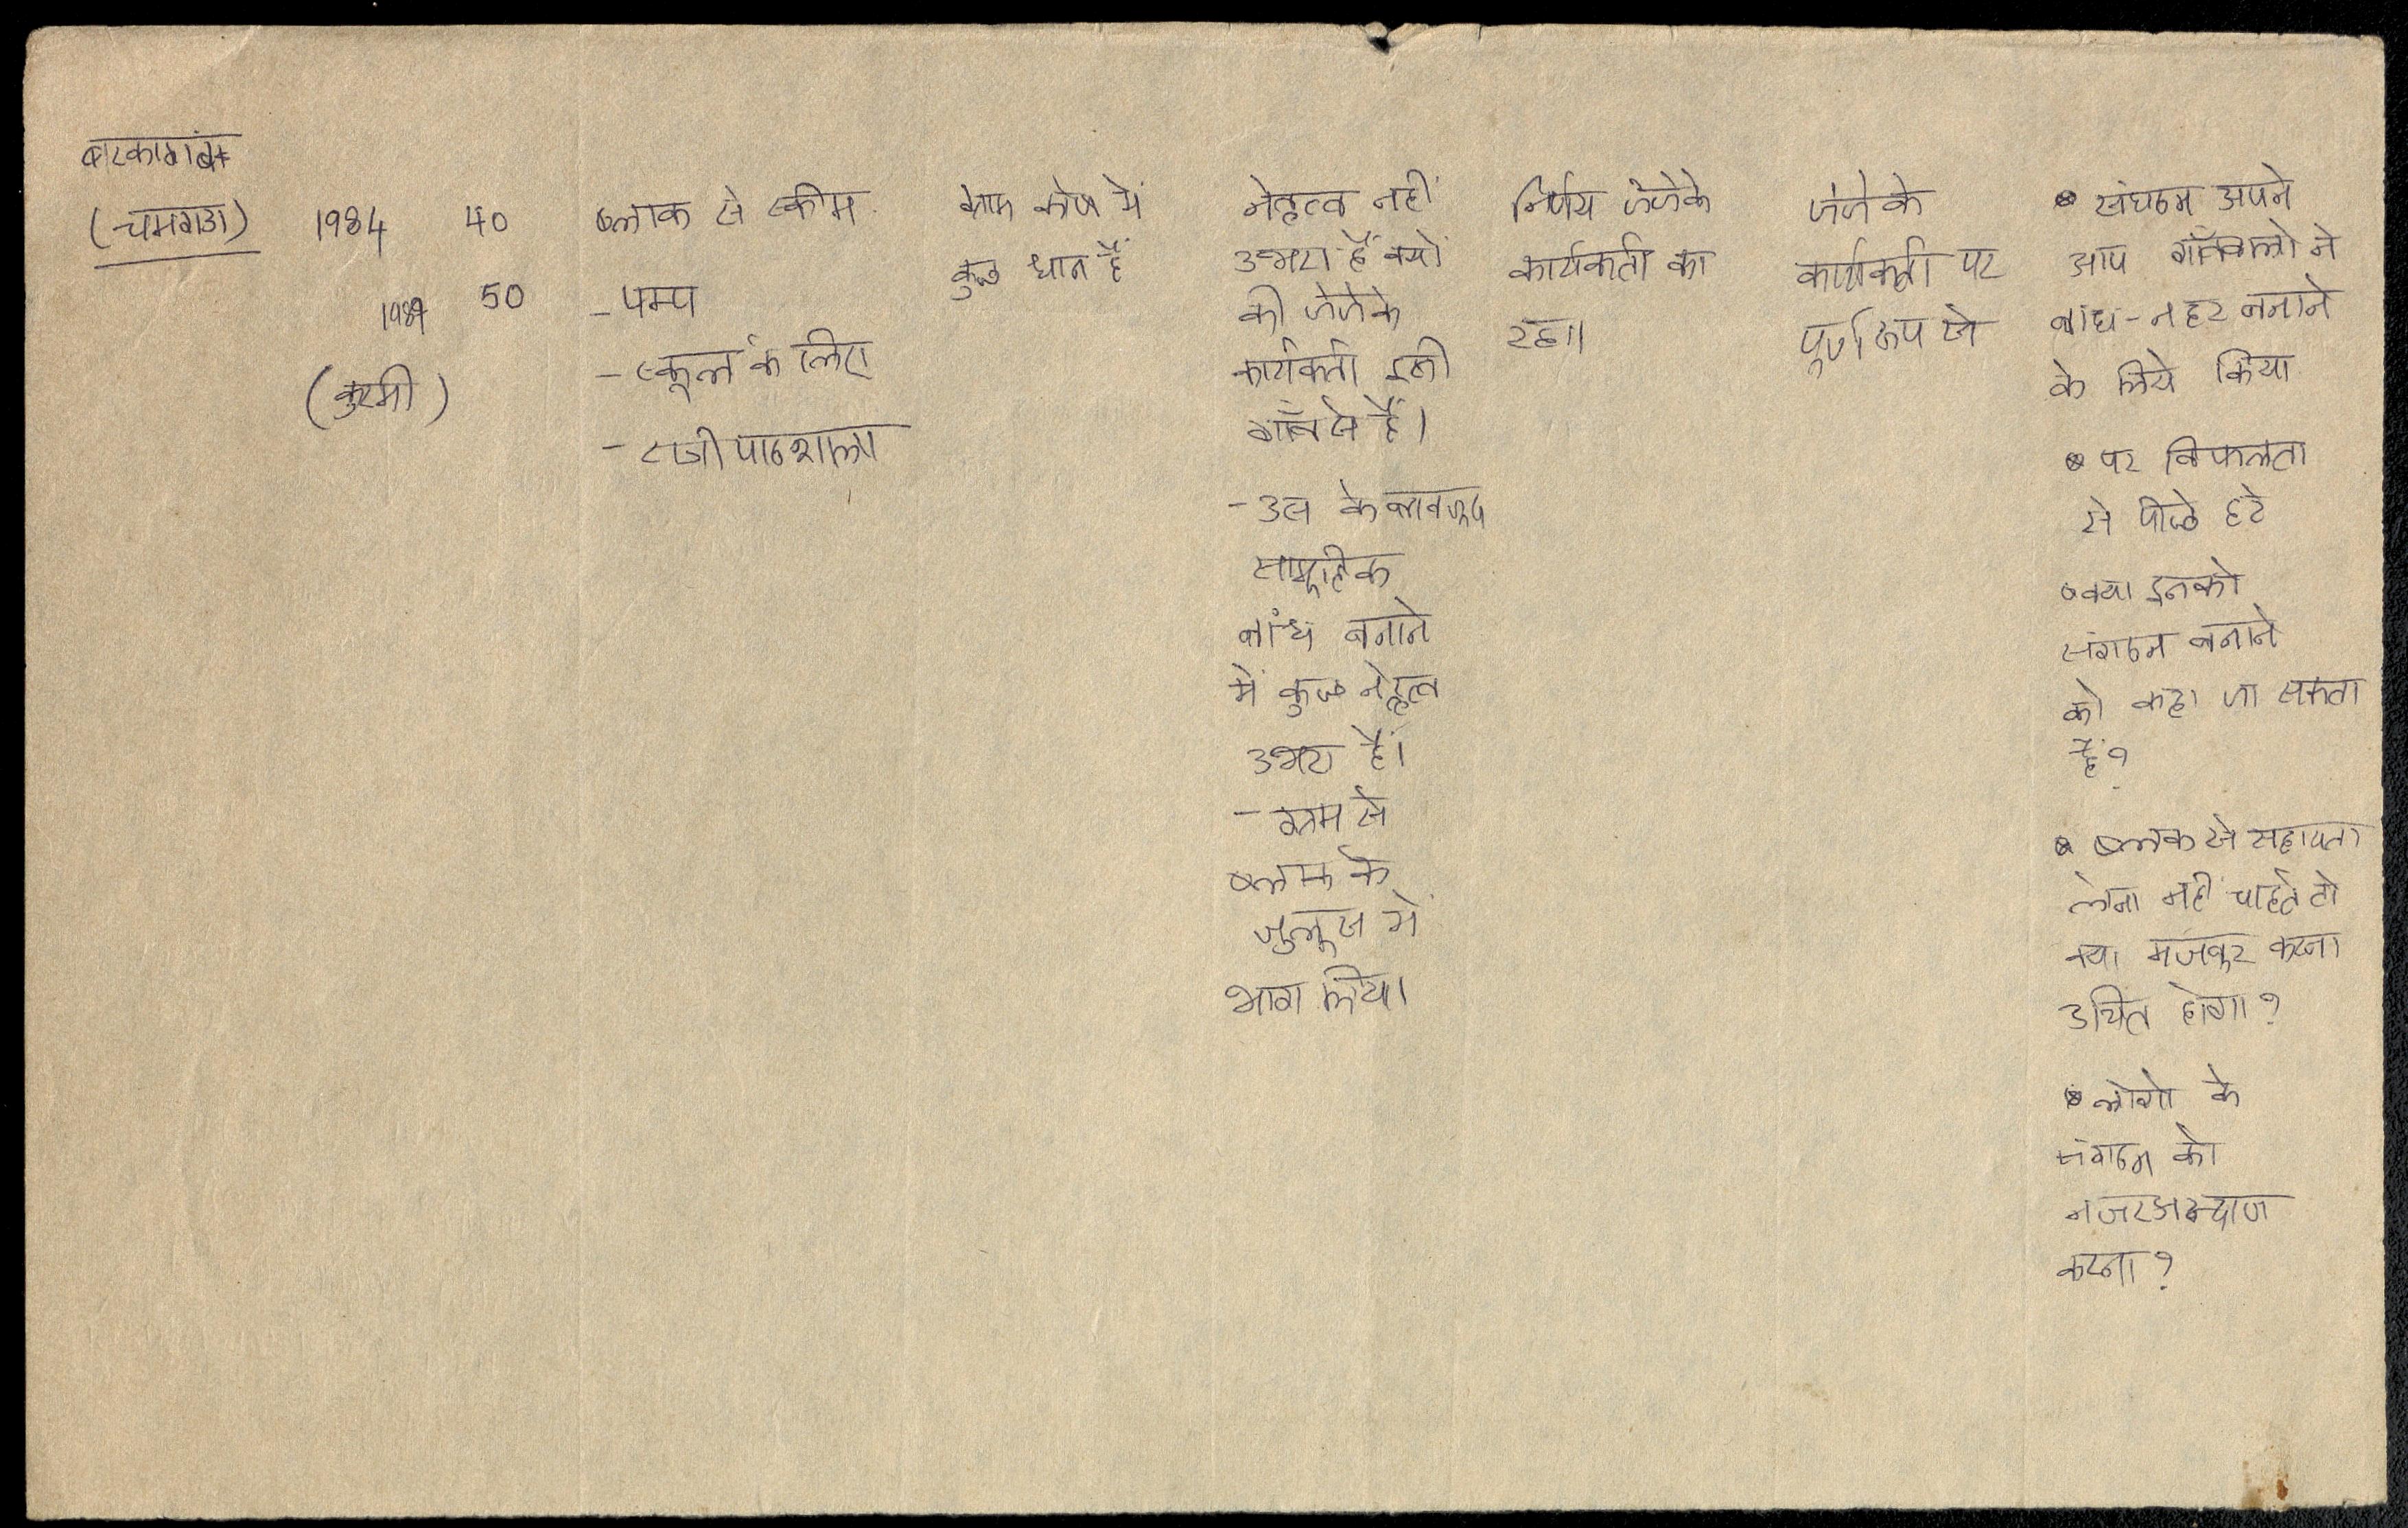 (चमगडा)
1984
40
1987
50
(कुरमी)
ब्लाक से स्कीम
- पम्प
- स्कूल के लिए
- रात्री पाठशाला
ग्राम कोष में
कुछ धान हैं
नेतृत्व नहीं
उभरा हैं क्यों
की जेजेके
कार्यकर्ता इसी
गाँव से हैं।
- उस के बावजूद
सामूहिक
बांध बनाने
में कुछ नेतृत्व
उभरा हैं।
- ग्राम से
ब्लाक के
जुलूस में
भाग लिया।
निर्णय जेजेके
कार्यकर्ता का
रहा।
जेजेके
कार्यकर्ता पर
पूर्ण रूप से
संघठन अपने
आप गाँववालो ने
बांध-नहर बनाने
के लिये किया
पर विफलता
से पीछे हटे
क्या इनको
संगठन बनाने
को कहा जा सकता
हैं?
ब्लाक से सहायता
लेना नही चाहते तो
क्या मजबूर करना
उचित होगा?
लोगो के
संगठन को
नजरअन्दाज
करना?